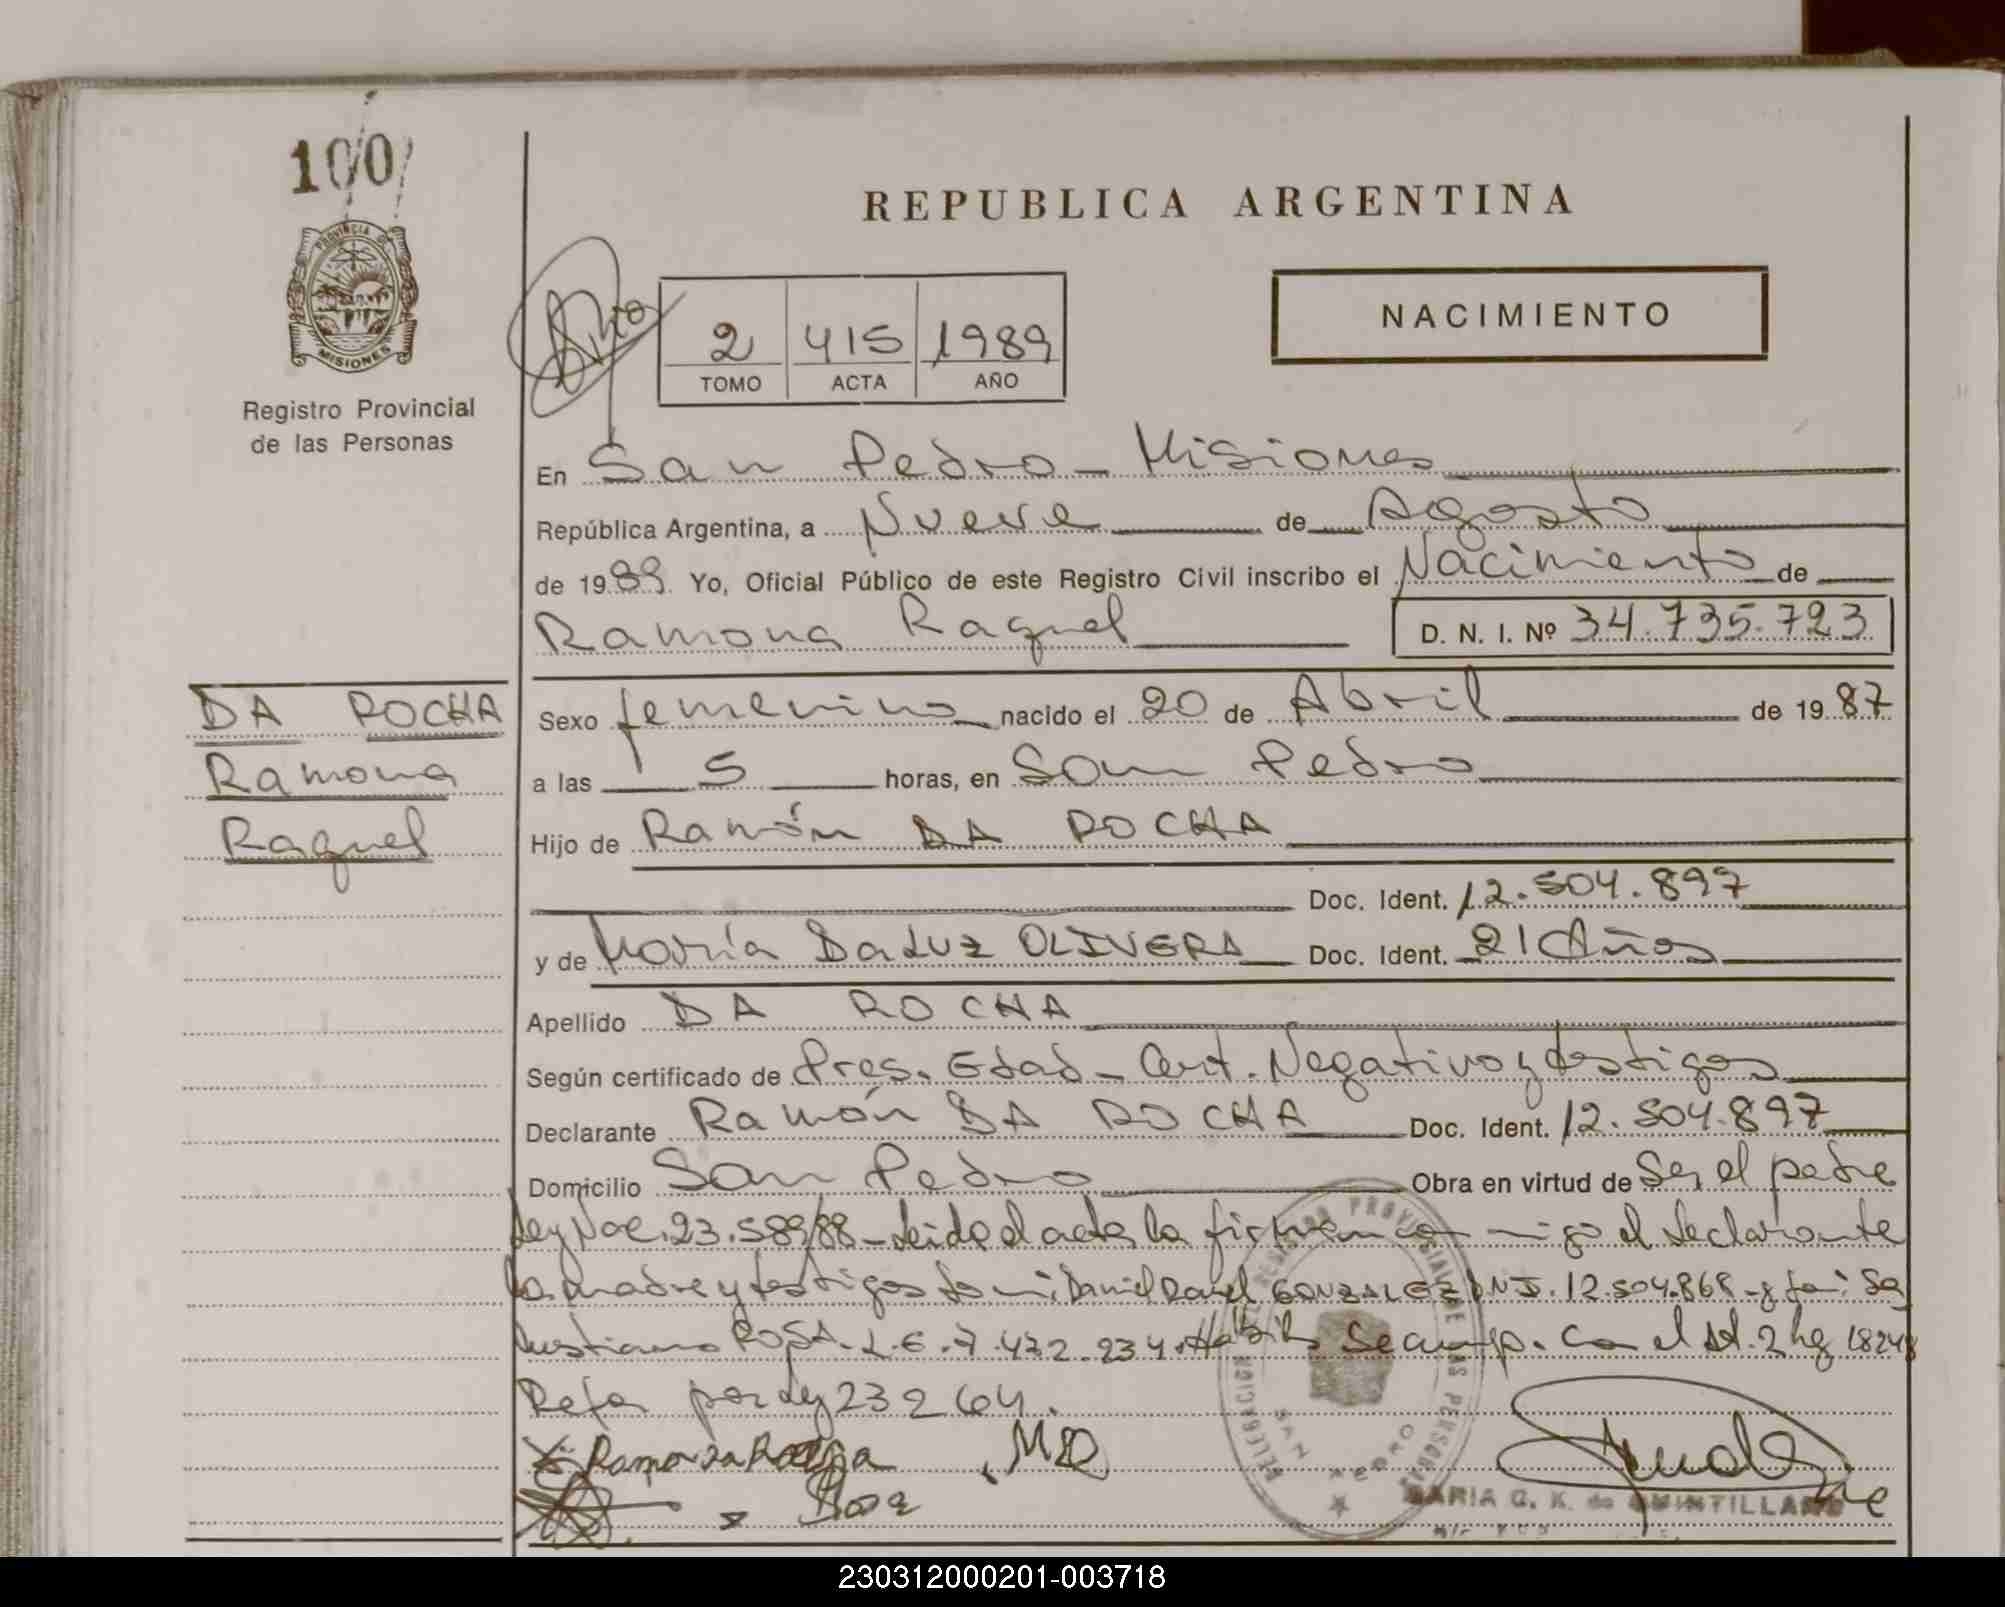 100
REPUBLICA ARGENTINA
PROVINCIA DE
MISIONES
Registro Provincial
de las Personas
2 415 1989
TOMO ACTA AÑO
NACIMIENTO
En San Pedro - Misiones
República Argentina, a Nueve de Agosto
de 1989. Yo, Oficial Público de este Registro Civil inscribo el Nacimiento de
Ramona Raquel D. N. I. Nº 34.735.723
DA ROCHA
Ramona
Raquel
Sexo femenino nacido el 20 de Abril de 1987
a las 5 horas, en San Pedro
Hijo de Ramón DA ROCHA
Doc. Ident. 12.504.897
y de María Da Luz OLIVERA Doc. Ident. 21 Años
Apellido DA ROCHA
Según certificado de Pres. Edad - Cert. Negativo y testigos
Declarante Ramón DA ROCHA Doc. Ident. 12.504.897
Domicilio San Pedro Obra en virtud de Ser el padre
Ley Nac. 23.589/88 - Leida el acta la firman conmigo el declarante
la madre y testigos Daniel GONZALEZ DNI. 12.504.868 - y
ROSA - L.E. 7.432.234. Se cump. Con el Art. 2 ley 18248
por ley 23264.
Ramon Da Rocha
MARIA G. K. de QUINTILLANO
SAN PEDRO
230312000201-003718